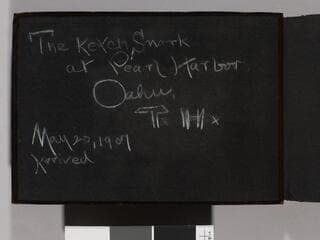 The Ketch, Snark
at Pearl Harbor
Oahu,
T. H.
May 20, 1907
Arrived